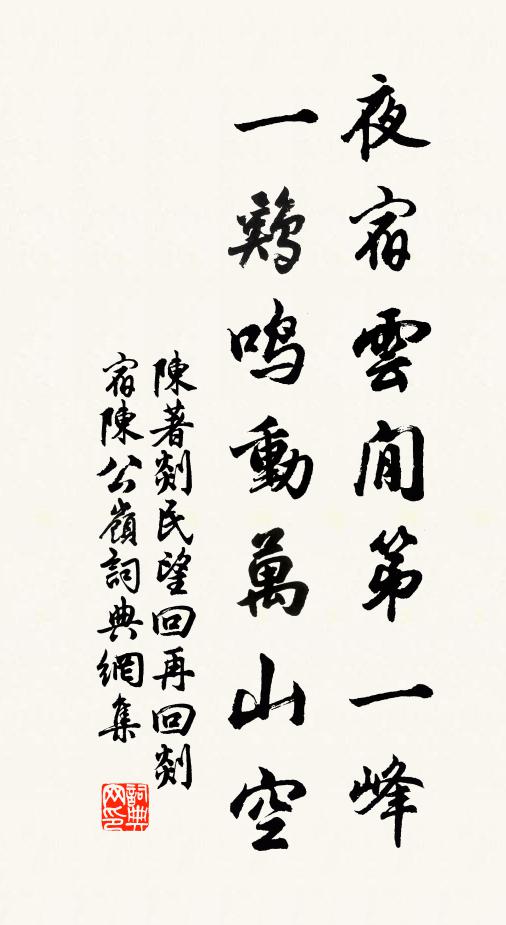 夜宿雲間第一峰
一鷄鳴動萬山空
陳著剡民望回再回剡
宿陳公嶺詞典網集
詞典
网印